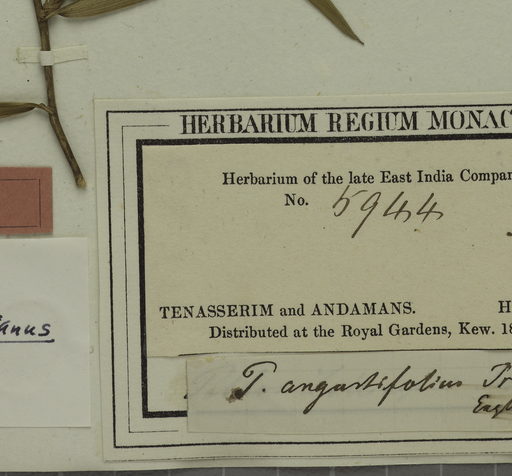 HERBARIUM REGIUM MONAC
Herbarium of the late East India Compan
No. 5944
TENASSERIM and ANDAMANS. H
Distributed at the Royal Gardens, Kew. 18
T. angustifolius Tr
Engl
anus